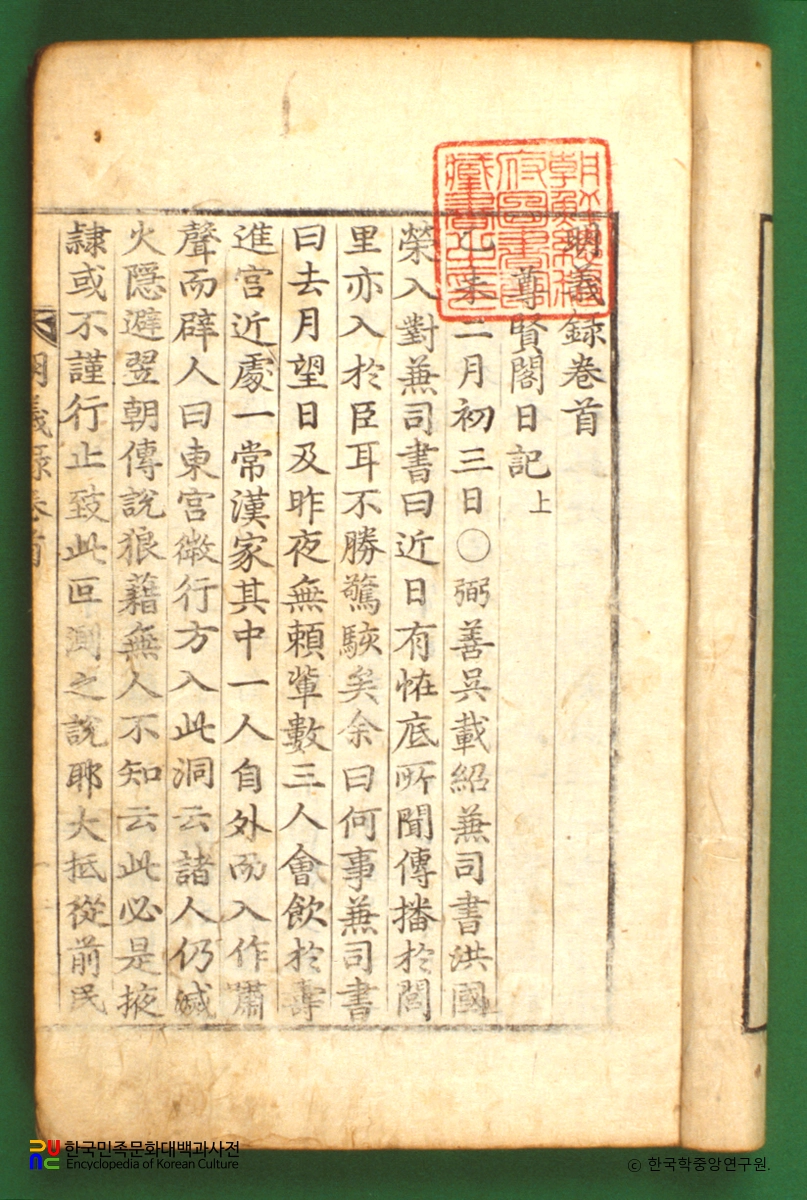 朝鮮總督
府圖書館
藏書之印
明義錄卷首
尊賢閣日記 上
乙未二月初三日〇弼善吳載紹兼司書洪國
榮入對兼司書曰近日有恠底所聞傳播於閭
里亦入於臣耳不勝驚駭矣余曰何事兼司書
曰去月望日及昨夜無賴輩數三人會飮於壽
進宮近處一常漢家其中一人自外而入作嘯
聲而辟人曰東宮微行方入此洞云諸人仍滅
火隱避翌朝傳說狼藉無人不知云此必是掖
隸或不謹行止致此叵測之說耶大抵從前民
明義錄卷首
한국민족문화대백과사전
Encyclopedia of Korean Culture
© 한국학중앙연구원.